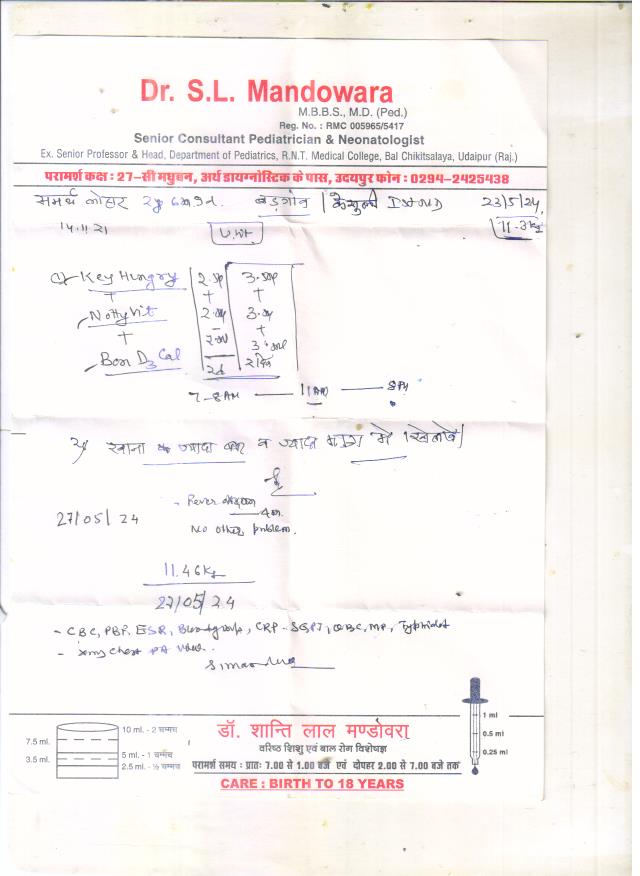 Dr. S.L. Mandowara
M.B.B.S., M.D. (Ped.)
Reg. No. : RMC 005965/5417
Senior Consultant Pediatrician & Neonatologist
Ex. Senior Professor & Head, Department of Pediatrics, R.N.T. Medical College, Bal Chikitsalaya, Udaipur (Raj.)
परामर्श कक्ष : 27-सी मधुबन, अर्थ डायग्नोस्टिक के पास, उदयपुर फोन : 0294-2425438
समर्थ लोहार 2y 6m बड़गांव 23/5/24
14.11.21 U.Wt 11.3kg
Key Hungry
+ + +
Nottyvit
+ +
Bon D3 Cal
7-8AM 11AM 8PM
2) खाना ज्यादा बार व ज्यादा मात्रा में खिलावें
27/05/24 - Fever
No other problem.
11.46kg
27/05/24
- CBC, PBF, ESR, Blood group, CRP - SGPT, QBC, MP, Typhidot
- Xray Chest PA View.
डॉ. शान्ति लाल मण्डोवरा
वरिष्ठ शिशु एवं बाल रोग विशेषज्ञ
परामर्श समय : प्रातः 7.00 से 1.00 बजे एवं दोपहर 2.00 से 7.00 बजे तक
CARE : BIRTH TO 18 YEARS
10 ml. - 2 चम्मच
7.5 ml.
5 ml - 1 चम्मच
3.5 ml.
2.5 ml - ½ चम्मच
1 ml
0.5 ml
0.25 ml